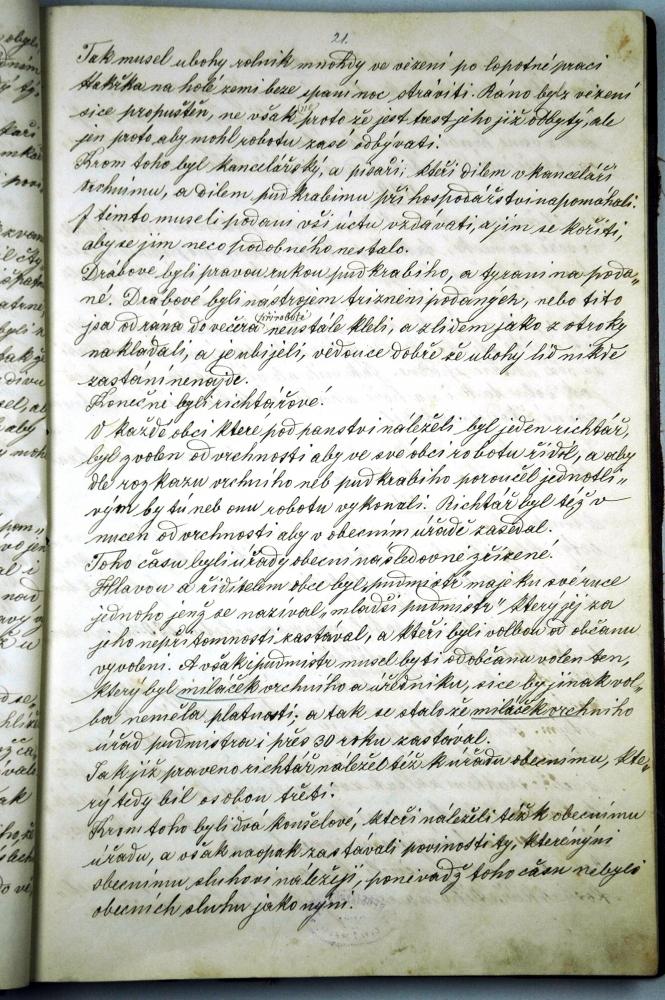 21.
Tak musel ubohy rolnik mnohdy ve vězení po lopotné praci
takřka na holé zemi beze spaní noc stráviti. Ráno byl z vězení
sice propuštěn, ne však proto že jest trest jeho již odbytý, ale
jen proto aby mohl robotu zasé odbývati.
Krom toho byl kancelářský, a pisaři; kteři dilem v kanceláři
vrchnímu, a dilem purkrabimu při hospodářství napomáhali.
I temto museli podani vši uctu vzdávati, a jim se kořiti,
aby se jim neco podobného nestalo.
Drábové, byli pravou rukou purkrabiho, a tyrani na podа„
né. Drábové byli nástrojem trizneni podaných, nebo tito
jsa od rána do večera při robotě neustále kleli, a z lidem jako z otroky
nakládali, a je ubijeli, vědouce dobře že ubohý lid nikde
zastání nenajde.
Konečně byli richtářové.
V každé obci ktere pod panstvi náleželi, byl jeden richtář,
byl zvolen od vrchnosti aby ve své obci robotu řídil, a aby
dlé rozkazu vrchniho neb purkrabiho poroučel jednotli„
vym by tú neb onu robotu vykonali. Richtář byl též v
nucen od vrchnosti aby v obecním úřadě zasedal.
Toho času byli úřady obecní následovné zřízené.
Hlavou a řiditelem obce byl „purkmistr“ maje ku své ruce
jednoho jenž se nazival „mladší purkmistr“ který jej za
jeho nepřitomnosti zastával, a kteři byli volbou od občanu
vyvoleni. A však i purkmistr musel byti od občanu volen ten,
který byl miláček vrchniho a úředniku, sice by jinak vol„
ba neměla platnosti; a tak se stalo že miláček vrchniho
úřad purkmistra i přes 30 roku zastaval.
Jak již praveno richtář náležel též k úřadu obecnímu, kte„
rý tedy bil osobou třetí.
Krom toho byli dvá konšelové, kteři náleželi též k obecnímu
úřadu, a však naopak zastávali povinosti ty, které nyni
obecnímu sluhovi náležejí, poněvadž toho času nebylo
obecních sluhu jako nyni.